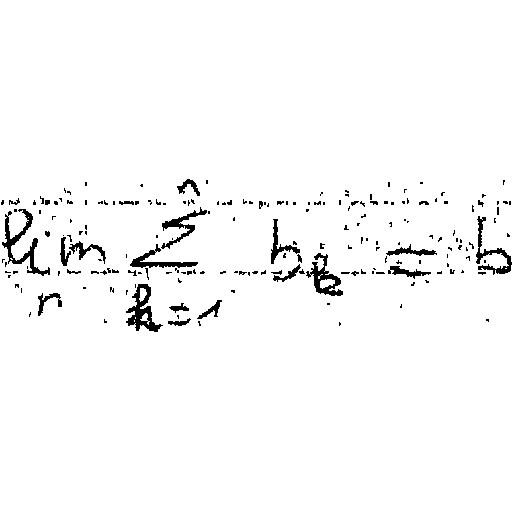 \lim_n \sum_{k=1}^{n} b_k = b